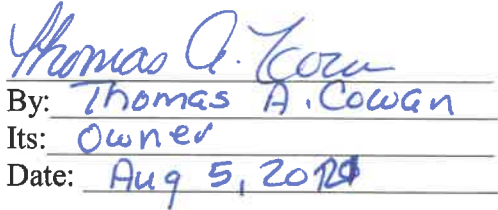 Thomas A. Cowan
By: Thomas A. Cowan
Its: Owner
Date: Aug 5,